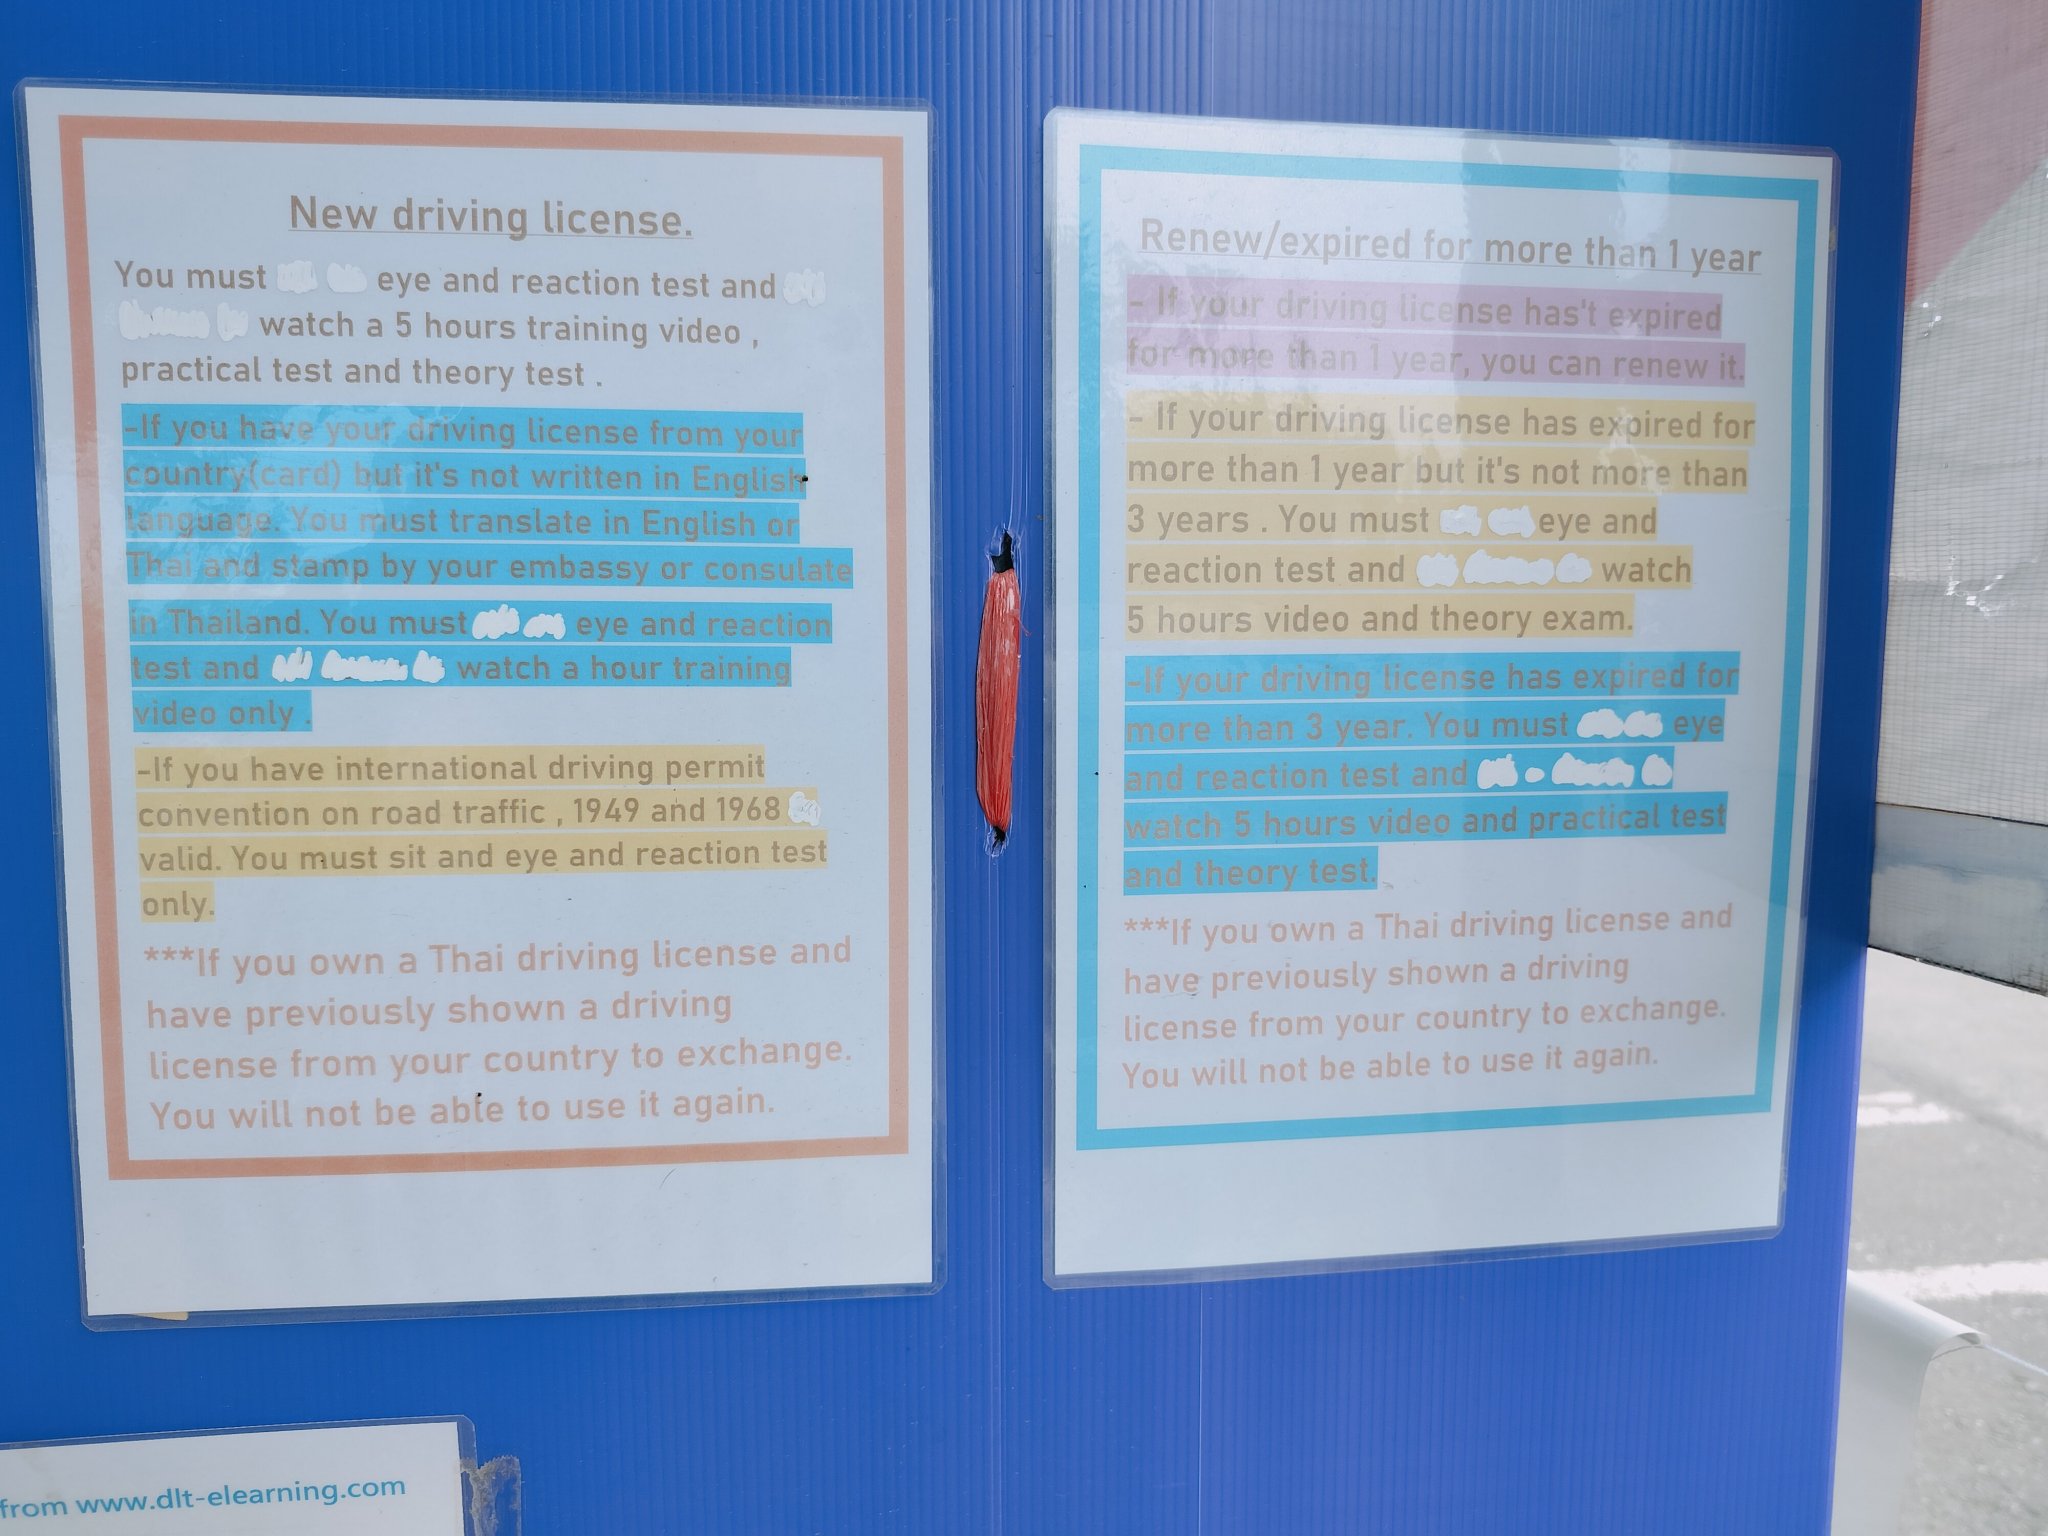 New driving license.
You must eye and reaction test and
watch a 5 hours training video ,
practical test and theory test .
-If you have your driving license from your
country(card) but it's not written in English
language. You must translate in English or
Thai and stamp by your embassy or consulate
in Thailand. You must eye and reaction
test and watch a hour training
video only .
-If you have international driving permit
convention on road traffic , 1949 and 1968
valid. You must sit and eye and reaction test
only.
***If you own a Thai driving license and
have previously shown a driving
license from your country to exchange.
You will not be able to use it again.
Renew/expired for more than 1 year
- If your driving license has't expired
for more than 1 year, you can renew it.
- If your driving license has expired for
more than 1 year but it's not more than
3 years . You must eye and
reaction test and watch
5 hours video and theory exam.
-If your driving license has expired for
more than 3 year. You must eye
and reaction test and
watch 5 hours video and practical test
and theory test.
***If you own a Thai driving license and
have previously shown a driving
license from your country to exchange.
You will not be able to use it again.
from www.dlt-elearning.com